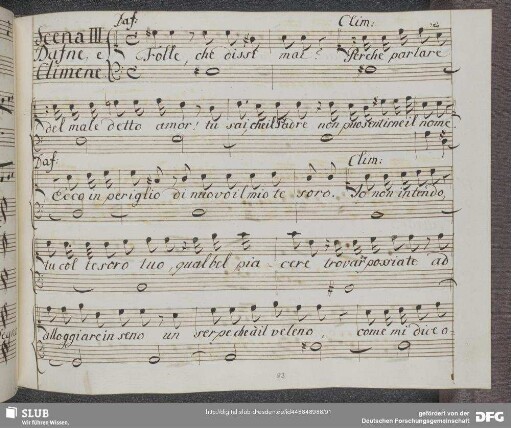 Daf: Clim:
Scena III
Dafne, e
Climene
Folle, che dissi mai? Perche parlare
del male detto amor! tu sai che il Padre non può sentirne il nome
Daf: Clim:
Ecco in periglio di nuovo il mio te soro. Io non intendo,
tu col tesoro tuo, qual bel pia cere trovar possiate ad
alloggiare in seno un serpe che à il veleno, come mi dice o-
SLUB
Wir führen Wissen.
gefördert von der
Deutschen Forschungsgemeinschaft
DFG